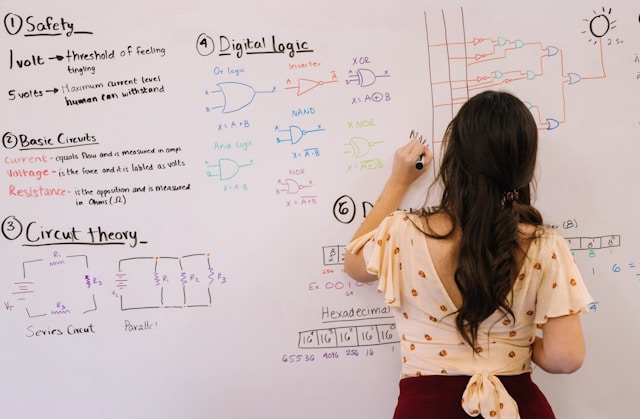 ① Safety
1 volt → threshold of feeling
tingling
5 volts → Maximum current level
human can withstand
② Basic Circuits
Current - equals flow and is measured in amps
Voltage - is the force and it is labled as volts
Resistance - is the opposition and is measured
in Ohms (Ω)
③ Circuit theory
R₁
R₂
R₃
Series Circuit
R₁
R₂
R₃
Parallel
④ Digital logic
Or logic
A
B
X
X = A + B
Inverter
A
XOR
A
B
X
X = A ⊕ B
NAND
A
B
X
And logic
A
B
X
NOR
X NOR
⑥
(B)
Hexadecimal
16⁴ 16³ 16² 16¹
65536 4096 256 16 1